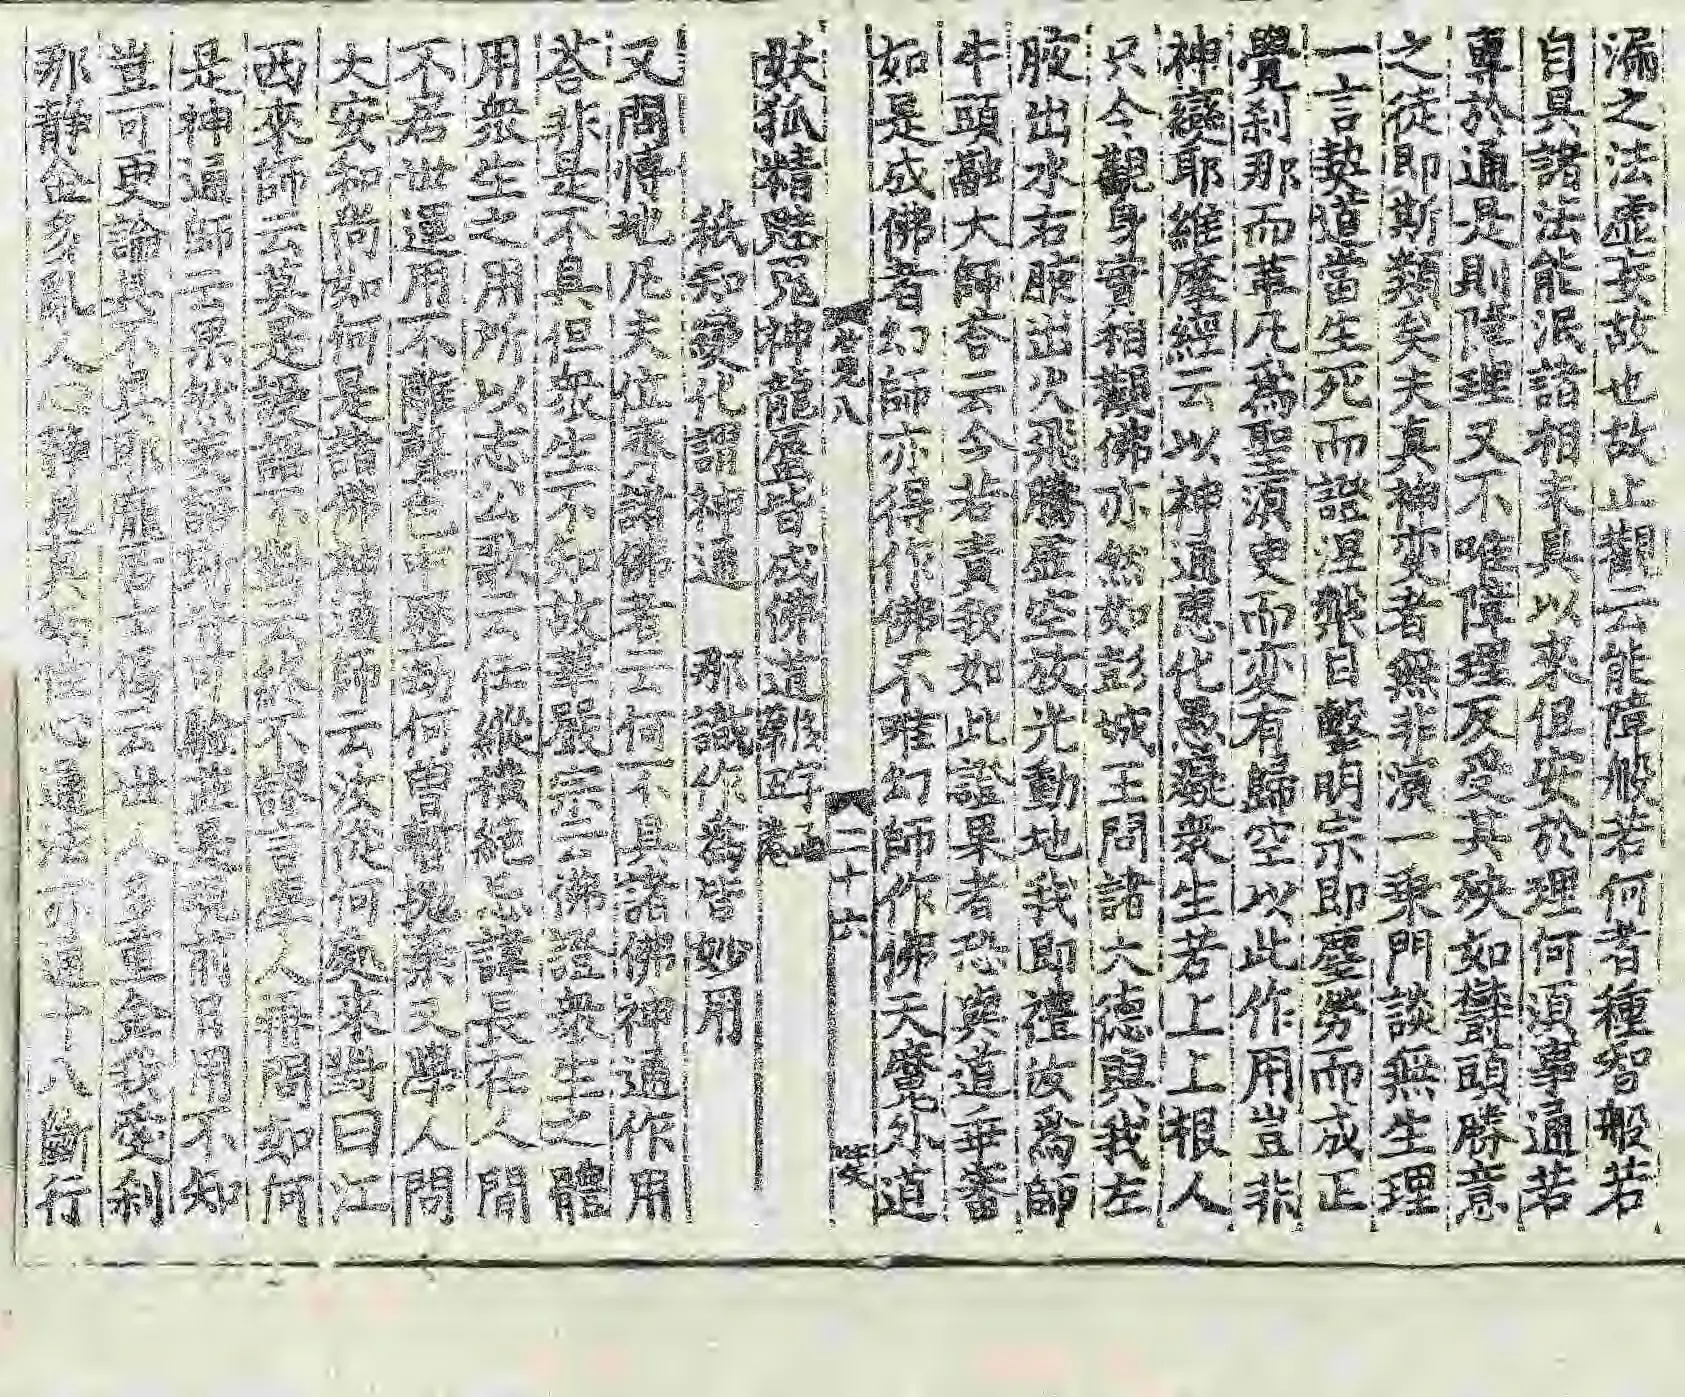 漏之法虛妄故也故止觀云能障般若何者種智般若
自具諸法能泯諸相未具以來但安於理何須事通若
專於通是則障理又不唯障理反受其殃如欝頭勝意
之徒即斯類矣夫真神变者無非演一乘門談無生理
一言契道當生死而證涅槃目擊明宗即塵勞而成正
覺刹那而革凡為聖須臾而变有歸空以此作用豈非
神變耶維摩經云以神通惠化愚癡衆生若上上根人
只今觀身實相觀佛亦然如彭城王問諸大德與我左
腋出水右腋出火飛騰虛空放光動地我即禮汝為師
牛頭融大師荅云今若責我如此證果者恐與道乖審
如是成佛者幻師亦得作佛不唯幻師作佛天魔外道
覽八 二十六
妖狐精魅鬼神龍蜃皆成佛道
秖知變化謂神通 那識作為皆妙用
又問博地凡夫位乘諸佛者云何不具諸佛神通作用
荅非是不具但衆生不知故華嚴宗云佛證衆生之體
用衆生之用所以志公歌云任縱橫絕忌諱長在人間
不居世運用不離聲色中歷劫何曽暫抛棄又學人問
大安和尚如何是諸佛神通師云汝從何處來對曰江
西來師云莫是謾語不對云終不謾言學人再問如何
是神通師云果然妄語斯皆可驗並是現前日用不知
豈可更論具不具耶龐居士偈云世人多重金我愛刹
那静金多亂人心静見真如性心通法亦通十八斷行